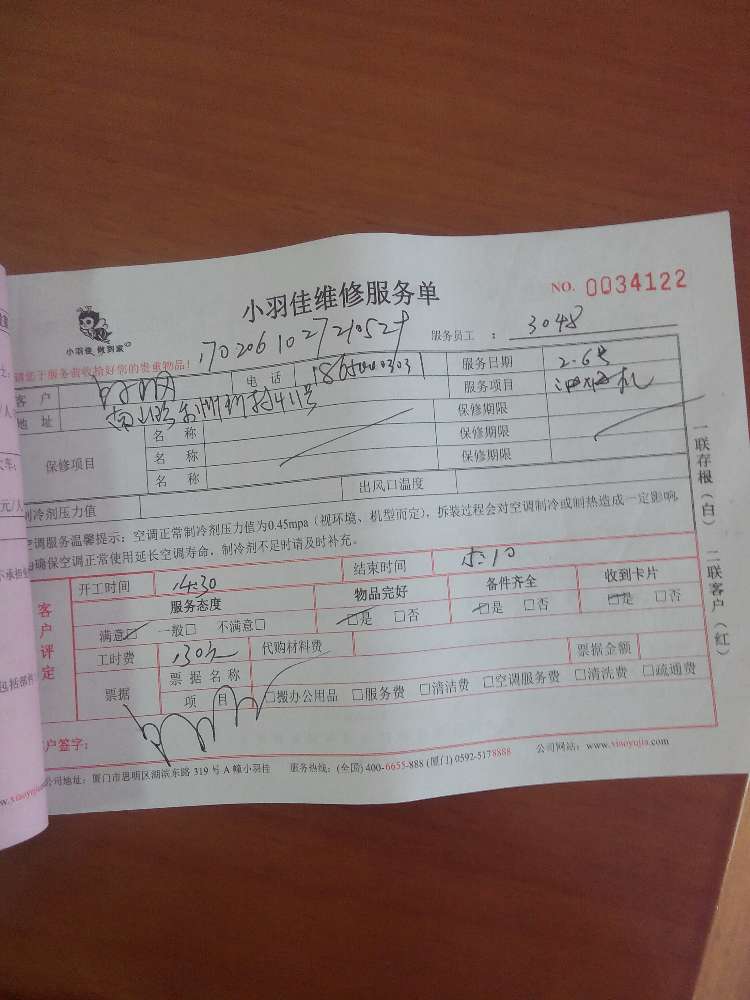 小羽佳维修服务单
NO. 0034122
小羽佳 做到家
服务员工: 3048
请您于服务前收给好您的贵重物品!
客户 电话 服务日期 2.6号
地址 411号 服务项目 机
保修项目 名称 保修期限
名称 保修期限
名称 保修期限
制冷剂压力值 出风口温度
空调服务温馨提示:空调正常制冷剂压力值为0.45mpa(视环境、机型而定),拆装过程会对空调制冷或制热造成一定影响
确保空调正常使用延长空调寿命,制冷剂不足时请及时补充。
客户评定 开工时间 14:30 结束时间
服务态度 物品完好 备件齐全 收到卡片
满意□ 一般□ 不满意□ □是 □否 □是 □否 □是 □否
工时费 130元 代购材料费
票据 票据名称 票据金额
项目 □搬办公用品 □服务费 □清洁费 □空调服务费 □清洗费 □疏通费
户签字:
公司地址:厦门市思明区湖滨东路 319 号 A 幢小羽佳 服务热线:(全国) 400-6655-888 (厦门) 0592-5178888 公司网站:www.xiaoyujia.com
一联存根(白) 二联客户(红)